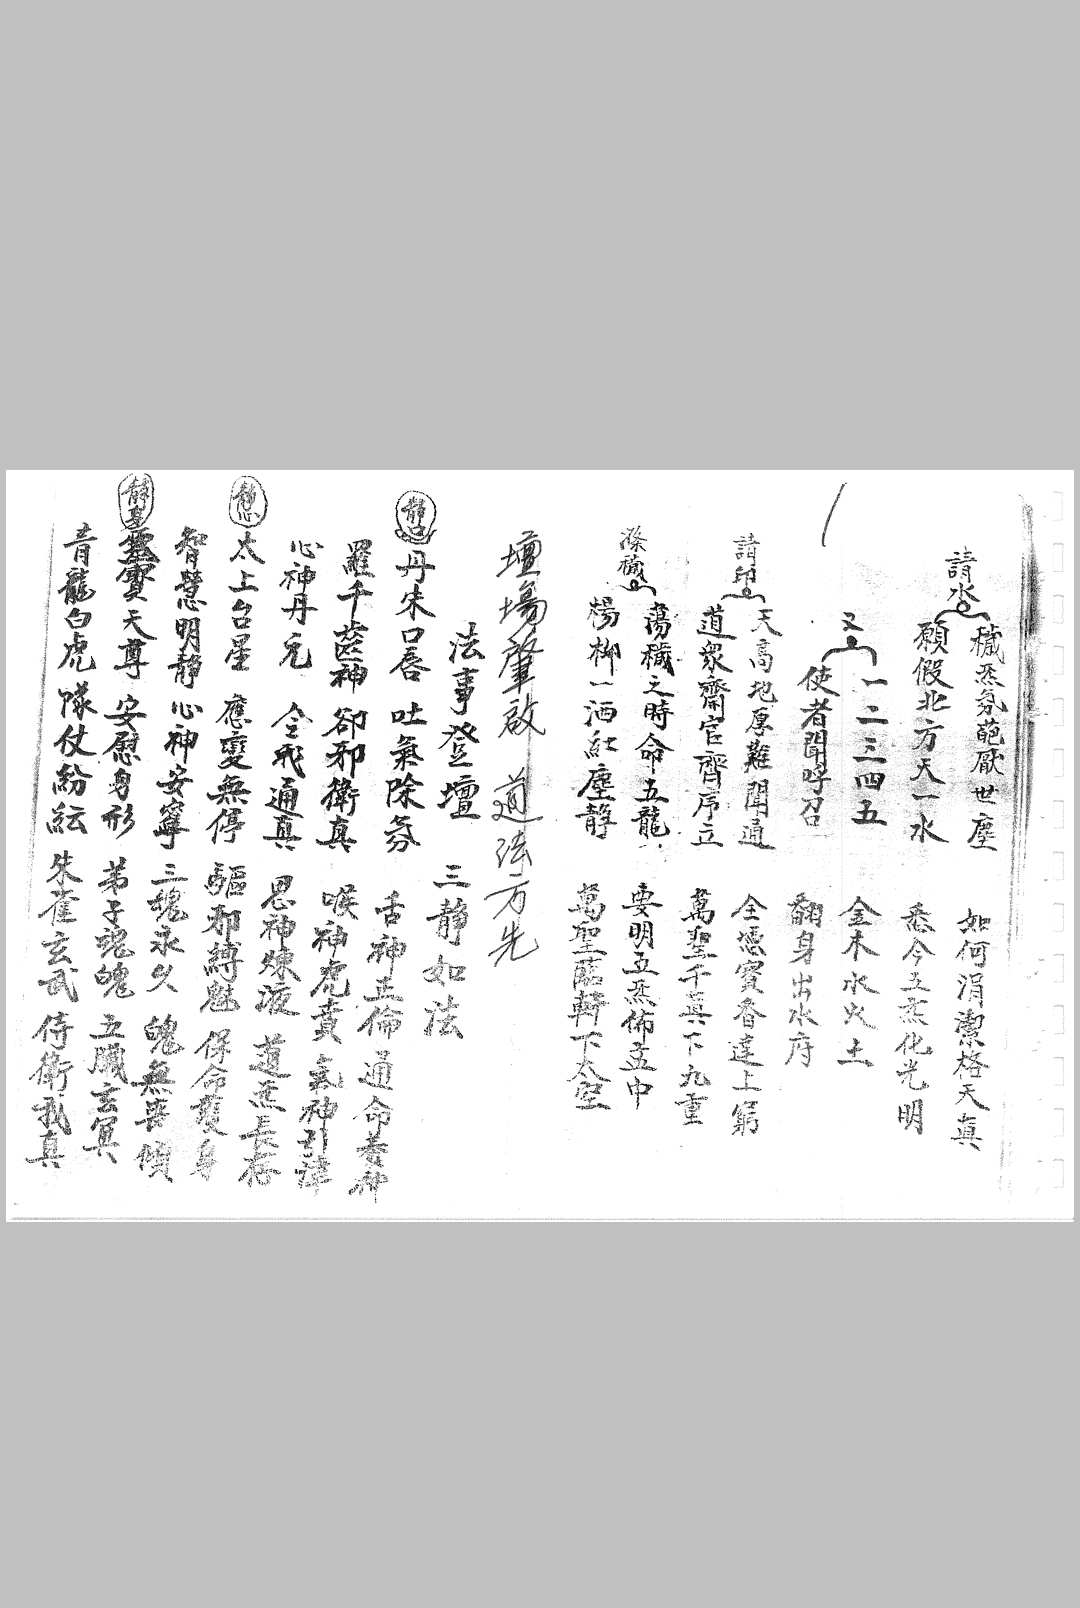 請水
穢炁氛葩厭世塵 如何涓潔格天真
願假北方天一水 悉令五炁化光明
又
一二三四五 金木水火土
使者聞呼召 翻身出水府
請印
天高地厚難聞通 全憑寳香達上窮
道衆齋官齊序立 萬聖千真下九重
滌穢
蕩穢之時命五龍 要明五炁佈五中
楊柳一洒紅塵靜 萬聖臨軒下太空
壇場肇啟 道法方先
法事登壇 三靜如法
靜口
丹朱口唇 吐氣除氛 舌神正倫 通命養神
羅千齒神 卻邪衛真 喉神虎賁 氣神引津
心神丹元 令我通真 思神煉液 道炁長存
靜心
太上台星 應變無停 驅邪縛魅 保命護身
智慧明靜 心神安寧 三魂永久 魄無喪傾
靜身
靈寶天尊 安慰身形 弟子魂魄 五臟玄冥
青龍白虎 隊仗紛紜 朱雀玄武 侍衛我真